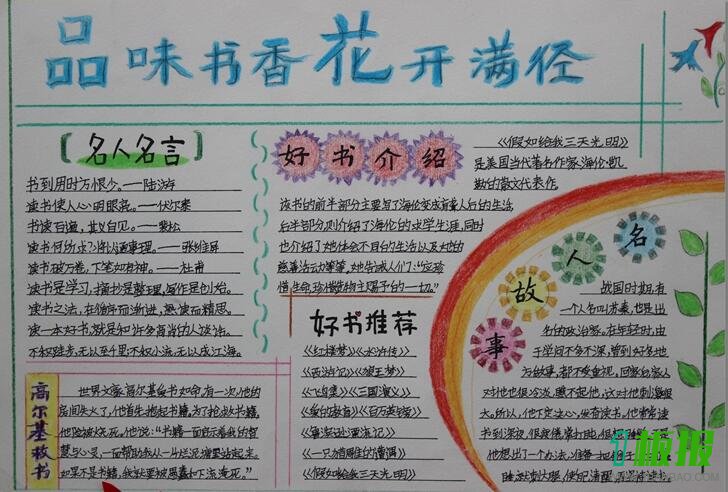 品味书香花开满径
名人名言
书到用时方恨少。——陆游
读书使人心明眼亮。——伏尔泰
书读百遍，其义自见。——裴松
读书何所求？将以通事理。——张维屏
读书破万卷，下笔如有神。——杜甫
读书是学习，摘抄是整理，写作是创始。
读书之法，在循序而渐进，熟读而精思。
读一本好书，就是和许多高尚的人谈话。
不积跬步，无以至千里；不积小流，无以成江海。
高尔基救书
世界文豪高尔基爱书如命，有一次，他的
房间失火了，他首先抱起书籍，为了抢救书籍，
他险些被烧死。他说：“书籍一面启示着我的智
慧与心灵，一面帮助我从一片烂泥塘里站起来，
如果不是书籍，我就要被愚蠢和下流淹死。”
好书介绍
《假如给我三天光明》
是美国当代著名作家海伦·凯
勒的散文代表作。
该书的前半部分主要写了海伦变成盲聋人后的生活，
后半部分则介绍了海伦的求学生涯，同时
也介绍了她体会不同的生活以及她的
慈善活动等等，她告诫人们：“应珍
惜生命，珍惜造物主赐予的一切。”
好书推荐
《红楼梦》《水浒传》
《西游记》《狼王梦》
《三国演义》
《鲁滨逊漂流记》
《一只乌鸦口渴的遭遇》
《假如给我三天光明》
名人故事
战国时期有
一个人名叫苏秦，也是出
名的政治家。在年轻时，由
于学问不多不深，曾到好多地
方做事，都不受重视。回家后家人
对他也很冷淡，瞧不起他，这对他刺激很
大。所以，他下定决心，发奋读书。他常常读
书到深夜，很疲倦，常打盹，
他想出了个办法，准备一把锥子，